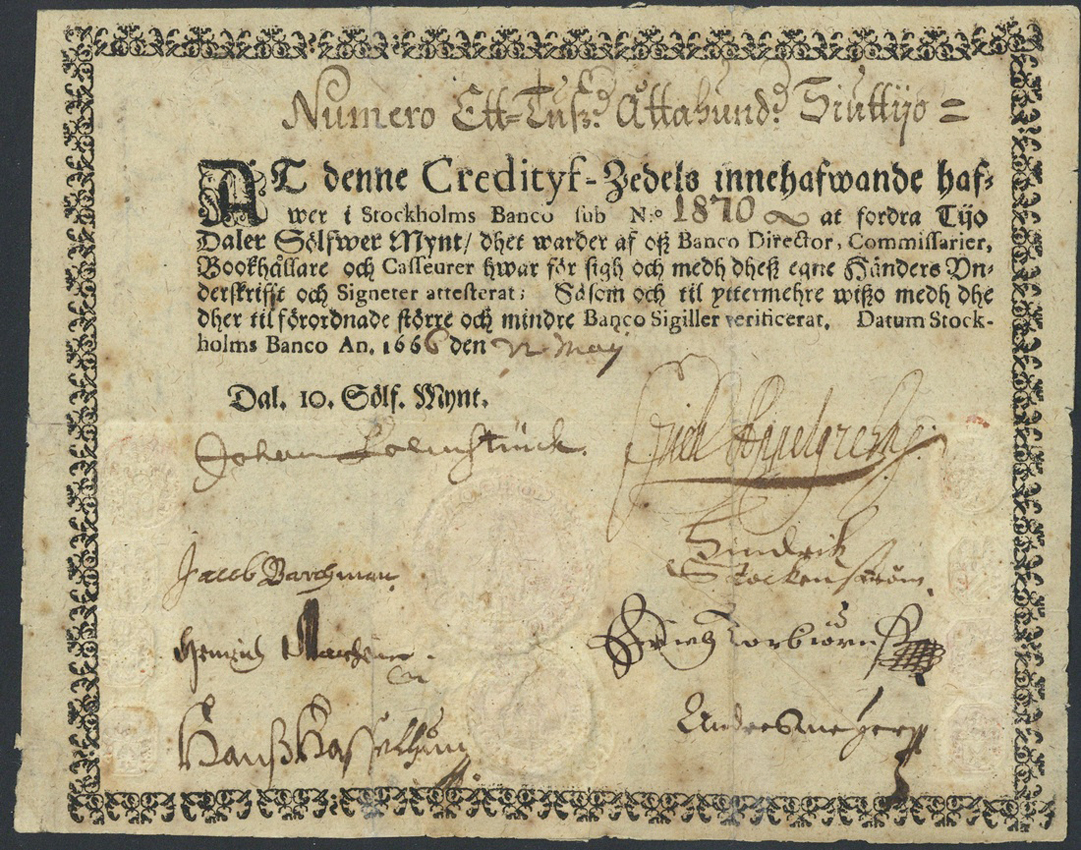 Numero Ett=Tuß:d Åttahund:d Siuttijo=
AT denne Credityf-Zedels innehafwande haf-
wer i Stockholms Banco sub N:o 1870 at fordra Tijo
Daler Sölfwer Mynt/ dhet warder af oß Banco Director, Commissarier,
Bookhållare och Casseurer hwar för sigh och medh dheß egne Händers Vn-
derskrifft och Signeter attesterat; Såsom och til yttermehre wißo medh dhe
dher til förordnade större och mindre Banco Sigiller verificerat. Datum Stock-
holms Banco An. 1666 den May
Dal. 10. Sölf. Mynt.
Johan
Jacob Barchman
Hindrik
Stockenström.
Henrich
Erich Torbiörn
Hanß
Andres